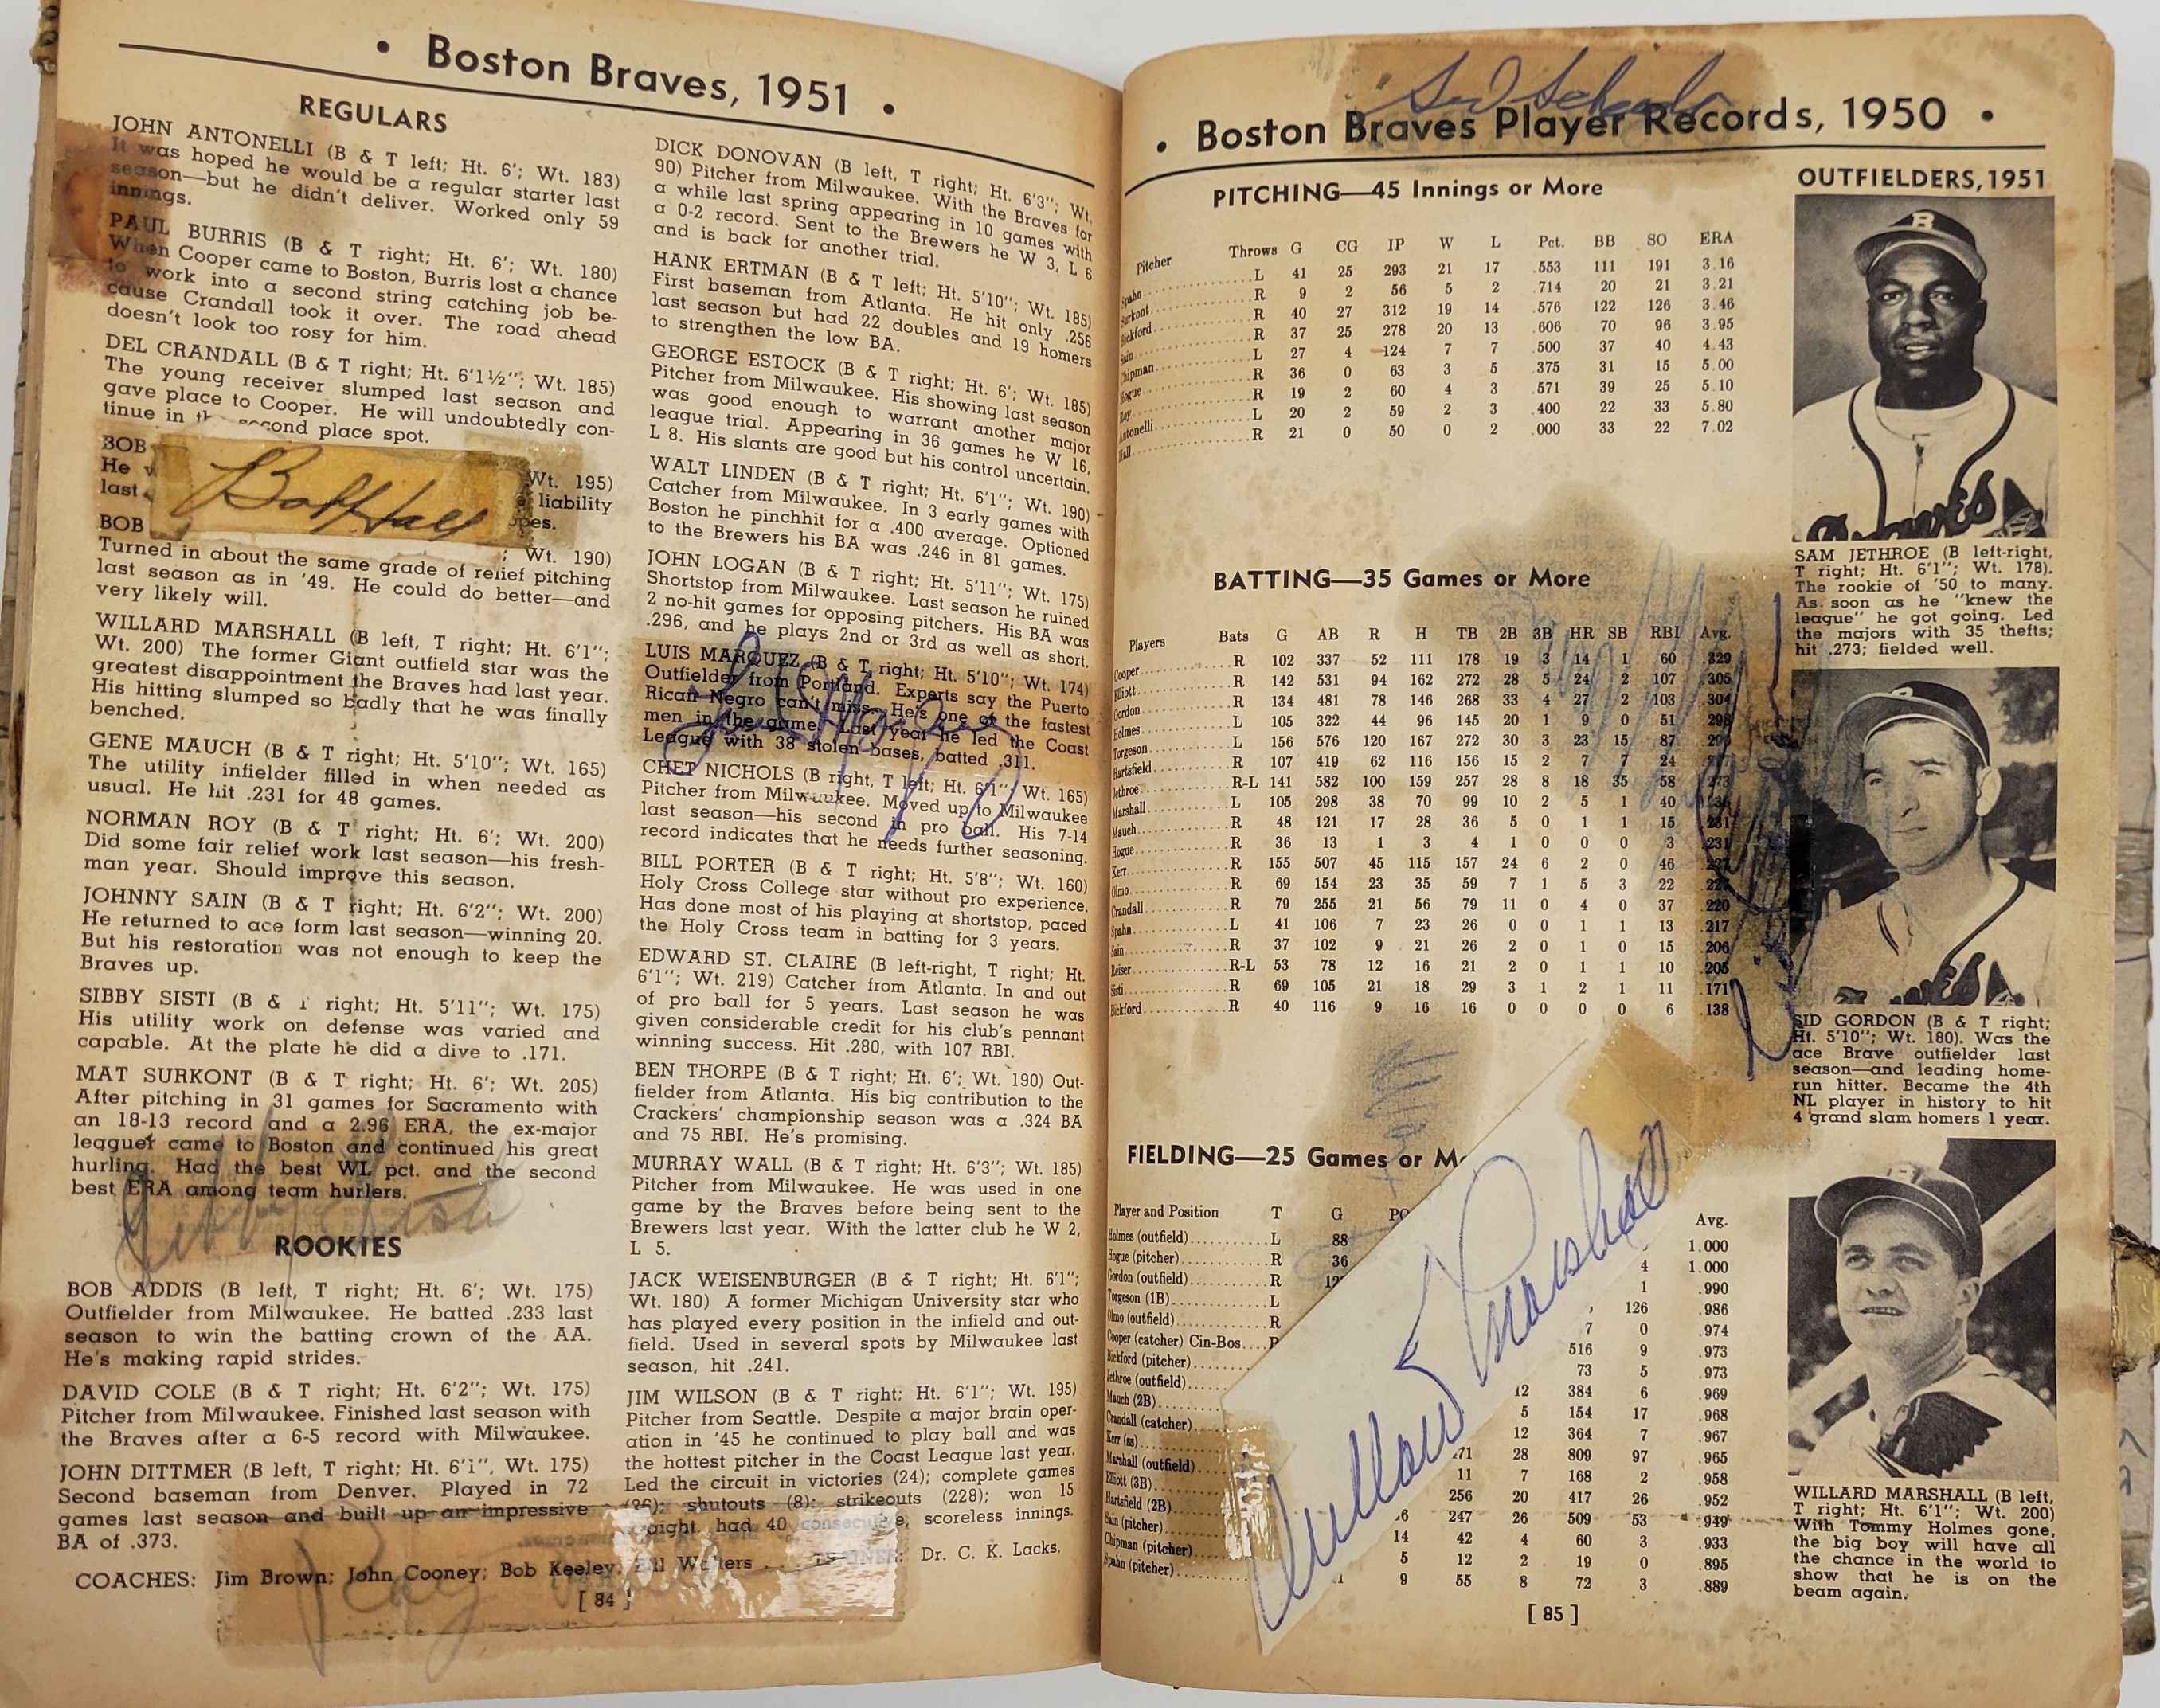 • Boston Braves, 1951 •
REGULARS
JOHN ANTONELLI (B & T left; Ht. 6'; Wt. 183)
It was hoped he would be a regular starter last
season—but he didn't deliver. Worked only 59
innings.
PAUL BURRIS (B & T right; Ht. 6'; Wt. 180)
When Cooper came to Boston, Burris lost a chance
to work into a second string catching job be-
cause Crandall took it over. The road ahead
doesn't look too rosy for him.
DEL CRANDALL (B & T right; Ht. 6'1½"; Wt. 185)
The young receiver slumped last season and
gave place to Cooper. He will undoubtedly con-
tinue in th second place spot.
BOB Wt. 195)
He liability
last
Bob Hall
BOB ; Wt. 190)
Turned in about the same grade of relief pitching
last season as in '49. He could do better—and
very likely will.
WILLARD MARSHALL (B left, T right; Ht. 6'1";
Wt. 200) The former Giant outfield star was the
greatest disappointment the Braves had last year.
His hitting slumped so badly that he was finally
benched.
GENE MAUCH (B & T right; Ht. 5'10"; Wt. 165)
The utility infielder filled in when needed as
usual. He hit .231 for 48 games.
NORMAN ROY (B & T right; Ht. 6'; Wt. 200)
Did some fair relief work last season—his fresh-
man year. Should improve this season.
JOHNNY SAIN (B & T right; Ht. 6'2"; Wt. 200)
He returned to ace form last season—winning 20.
But his restoration was not enough to keep the
Braves up.
SIBBY SISTI (B & T right; Ht. 5'11"; Wt. 175)
His utility work on defense was varied and
capable. At the plate he did a dive to .171.
MAT SURKONT (B & T right; Ht. 6'; Wt. 205)
After pitching in 31 games for Sacramento with
an 18-13 record and a 2.96 ERA, the ex-major
leaguer came to Boston and continued his great
hurling. Had the best WL pct. and the second
best ERA among team hurlers.
Sibby Sisti
ROOKIES
BOB ADDIS (B left, T right; Ht. 6'; Wt. 175)
Outfielder from Milwaukee. He batted .233 last
season to win the batting crown of the AA.
He's making rapid strides.
DAVID COLE (B & T right; Ht. 6'2"; Wt. 175)
Pitcher from Milwaukee. Finished last season with
the Braves after a 6-5 record with Milwaukee.
JOHN DITTMER (B left, T right; Ht. 6'1", Wt. 175)
Second baseman from Denver. Played in 72
games last season and built up an impressive
BA of .373.
DICK DONOVAN (B left, T right; Ht. 6'3"; Wt.
90) Pitcher from Milwaukee. With the Braves for
a while last spring appearing in 10 games with
a 0-2 record. Sent to the Brewers he W 3, L 6
and is back for another trial.
HANK ERTMAN (B & T left; Ht. 5'10"; Wt. 185)
First baseman from Atlanta. He hit only .256
last season but had 22 doubles and 19 homers
to strengthen the low BA.
GEORGE ESTOCK (B & T right; Ht. 6'; Wt. 185)
Pitcher from Milwaukee. His showing last season
was good enough to warrant another major
league trial. Appearing in 36 games he W 16,
L 8. His slants are good but his control uncertain.
WALT LINDEN (B & T right; Ht. 6'1"; Wt. 190)
Catcher from Milwaukee. In 3 early games with
Boston he pinchhit for a .400 average. Optioned
to the Brewers his BA was .246 in 81 games.
JOHN LOGAN (B & T right; Ht. 5'11"; Wt. 175)
Shortstop from Milwaukee. Last season he ruined
2 no-hit games for opposing pitchers. His BA was
.296, and he plays 2nd or 3rd as well as short.
LUIS MARQUEZ (B & T right; Ht. 5'10"; Wt. 174)
Outfielder from Portland. Experts say the Puerto
Rican Negro can't miss. He's one of the fastest
men in the game. Last year he led the Coast
League with 38 stolen bases, batted .311.
CHET NICHOLS (B right, T left; Ht. 6'1" Wt. 165)
Pitcher from Milwaukee. Moved up to Milwaukee
last season—his second in pro ball. His 7-14
record indicates that he needs further seasoning.
BILL PORTER (B & T right; Ht. 5'8"; Wt. 160)
Holy Cross College star without pro experience.
Has done most of his playing at shortstop, paced
the Holy Cross team in batting for 3 years.
EDWARD ST. CLAIRE (B left-right, T right; Ht.
6'1"; Wt. 219) Catcher from Atlanta. In and out
of pro ball for 5 years. Last season he was
given considerable credit for his club's pennant
winning success. Hit .280, with 107 RBI.
BEN THORPE (B & T right; Ht. 6'; Wt. 190) Out-
fielder from Atlanta. His big contribution to the
Crackers' championship season was a .324 BA
and 75 RBI. He's promising.
MURRAY WALL (B & T right; Ht. 6'3"; Wt. 185)
Pitcher from Milwaukee. He was used in one
game by the Braves before being sent to the
Brewers last year. With the latter club he W 2,
L 5.
JACK WEISENBURGER (B & T right; Ht. 6'1";
Wt. 180) A former Michigan University star who
has played every position in the infield and out-
field. Used in several spots by Milwaukee last
season, hit .241.
JIM WILSON (B & T right; Ht. 6'1"; Wt. 195)
Pitcher from Seattle. Despite a major brain oper-
ation in '45 he continued to play ball and was
the hottest pitcher in the Coast League last year.
Led the circuit in victories (24); complete games
(26); shutouts (8); strikeouts (228); won 15
had 40 consecutive, scoreless innings.
COACHES: Jim Brown; John Cooney; Bob Keeley; Dr. C. K. Lacks.
[ 84 ]
• Boston Braves Player Records, 1950 •
PITCHING—45 Innings or More
Pitcher Throws G CG IP W L Pct. BB SO ERA
Spahn L 41 25 293 21 17 .553 111 191 3.16
Surkont R 9 2 56 5 2 .714 20 21 3.21
Bickford R 40 27 312 19 14 .576 122 126 3.46
Sain R 37 25 278 20 13 .606 70 96 3.95
Chipman L 27 4 124 7 7 .500 37 40 4.43
Hogue R 36 0 63 3 5 .375 31 15 5.00
Roy R 19 2 60 4 3 .571 39 25 5.10
Antonelli L 20 2 59 2 3 .400 22 33 5.80
Hall R 21 0 50 0 2 .000 33 22 7.02
BATTING—35 Games or More
Players Bats G AB R H TB 2B 3B HR SB RBI Avg.
Cooper R 102 337 52 111 178 19 3 14 1 60 .329
Elliott R 142 531 94 162 272 28 5 24 2 107 .305
Gordon R 134 481 78 146 268 33 4 27 2 103 .304
Holmes L 105 322 44 96 145 20 1 9 0 51
Torgeson L 156 576 120 167 272 30 3 23 15 87
Hartsfield R 107 419 62 116 156 15 2 7 7 24
Jethroe R-L 141 582 100 159 257 28 8 18 35 58 .273
Marshall L 105 298 38 70 99 10 2 5 1 40
Mauch R 48 121 17 28 36 5 0 1 1 15 .231
Hogue R 36 13 1 3 4 1 0 0 0 3 .231
Kerr R 155 507 45 115 157 24 6 2 0 46 .227
Olmo R 69 154 23 35 59 7 1 5 3 22 .227
Crandall R 79 255 21 56 79 11 0 4 0 37 .220
Spahn L 41 106 7 23 26 0 0 1 1 13 .217
Sain R 37 102 9 21 26 2 0 1 0 15 .206
Reiser R-L 53 78 12 16 21 2 0 1 1 10 .205
Sisti R 69 105 21 18 29 3 1 2 1 11 .171
Bickford R 40 116 9 16 16 0 0 0 0 6 .138
FIELDING—25 Games or
Player and Position T G Avg.
Holmes (outfield) L 88 1.000
Hogue (pitcher) R 36 4 1.000
Gordon (outfield) R 1 .990
Torgeson (1B) L 126 .986
Olmo (outfield) R 7 0 .974
Cooper (catcher) Cin-Bos. 516 9 .973
Bickford (pitcher) 73 5 .973
Jethroe (outfield) 12 384 6 .969
Mauch (2B) 5 154 17 .968
Crandall (catcher) 12 364 7 .967
Kerr (ss) 28 809 97 .965
Marshall (outfield) 11 7 168 2 .958
Elliott (3B) 256 20 417 26 .952
Hartsfield (2B) 247 26 509 53 .949
Sain (pitcher) 14 42 4 60 3 .933
Chipman (pitcher) 5 12 2 19 0 .895
Spahn (pitcher) 9 55 8 72 3 .889
Willard Marshall
[ 85 ]
OUTFIELDERS, 1951
B
Braves
SAM JETHROE (B left-right,
T right; Ht. 6'1"; Wt. 178).
The rookie of '50 to many.
As soon as he "knew the
league" he got going. Led
the majors with 35 thefts;
hit .273; fielded well.
SID GORDON (B & T right;
Ht. 5'10"; Wt. 180). Was the
ace Brave outfielder last
season—and leading home-
run hitter. Became the 4th
NL player in history to hit
4 grand slam homers 1 year.
WILLARD MARSHALL (B left,
T right; Ht. 6'1"; Wt. 200)
With Tommy Holmes gone,
the big boy will have all
the chance in the world to
show that he is on the
beam again.